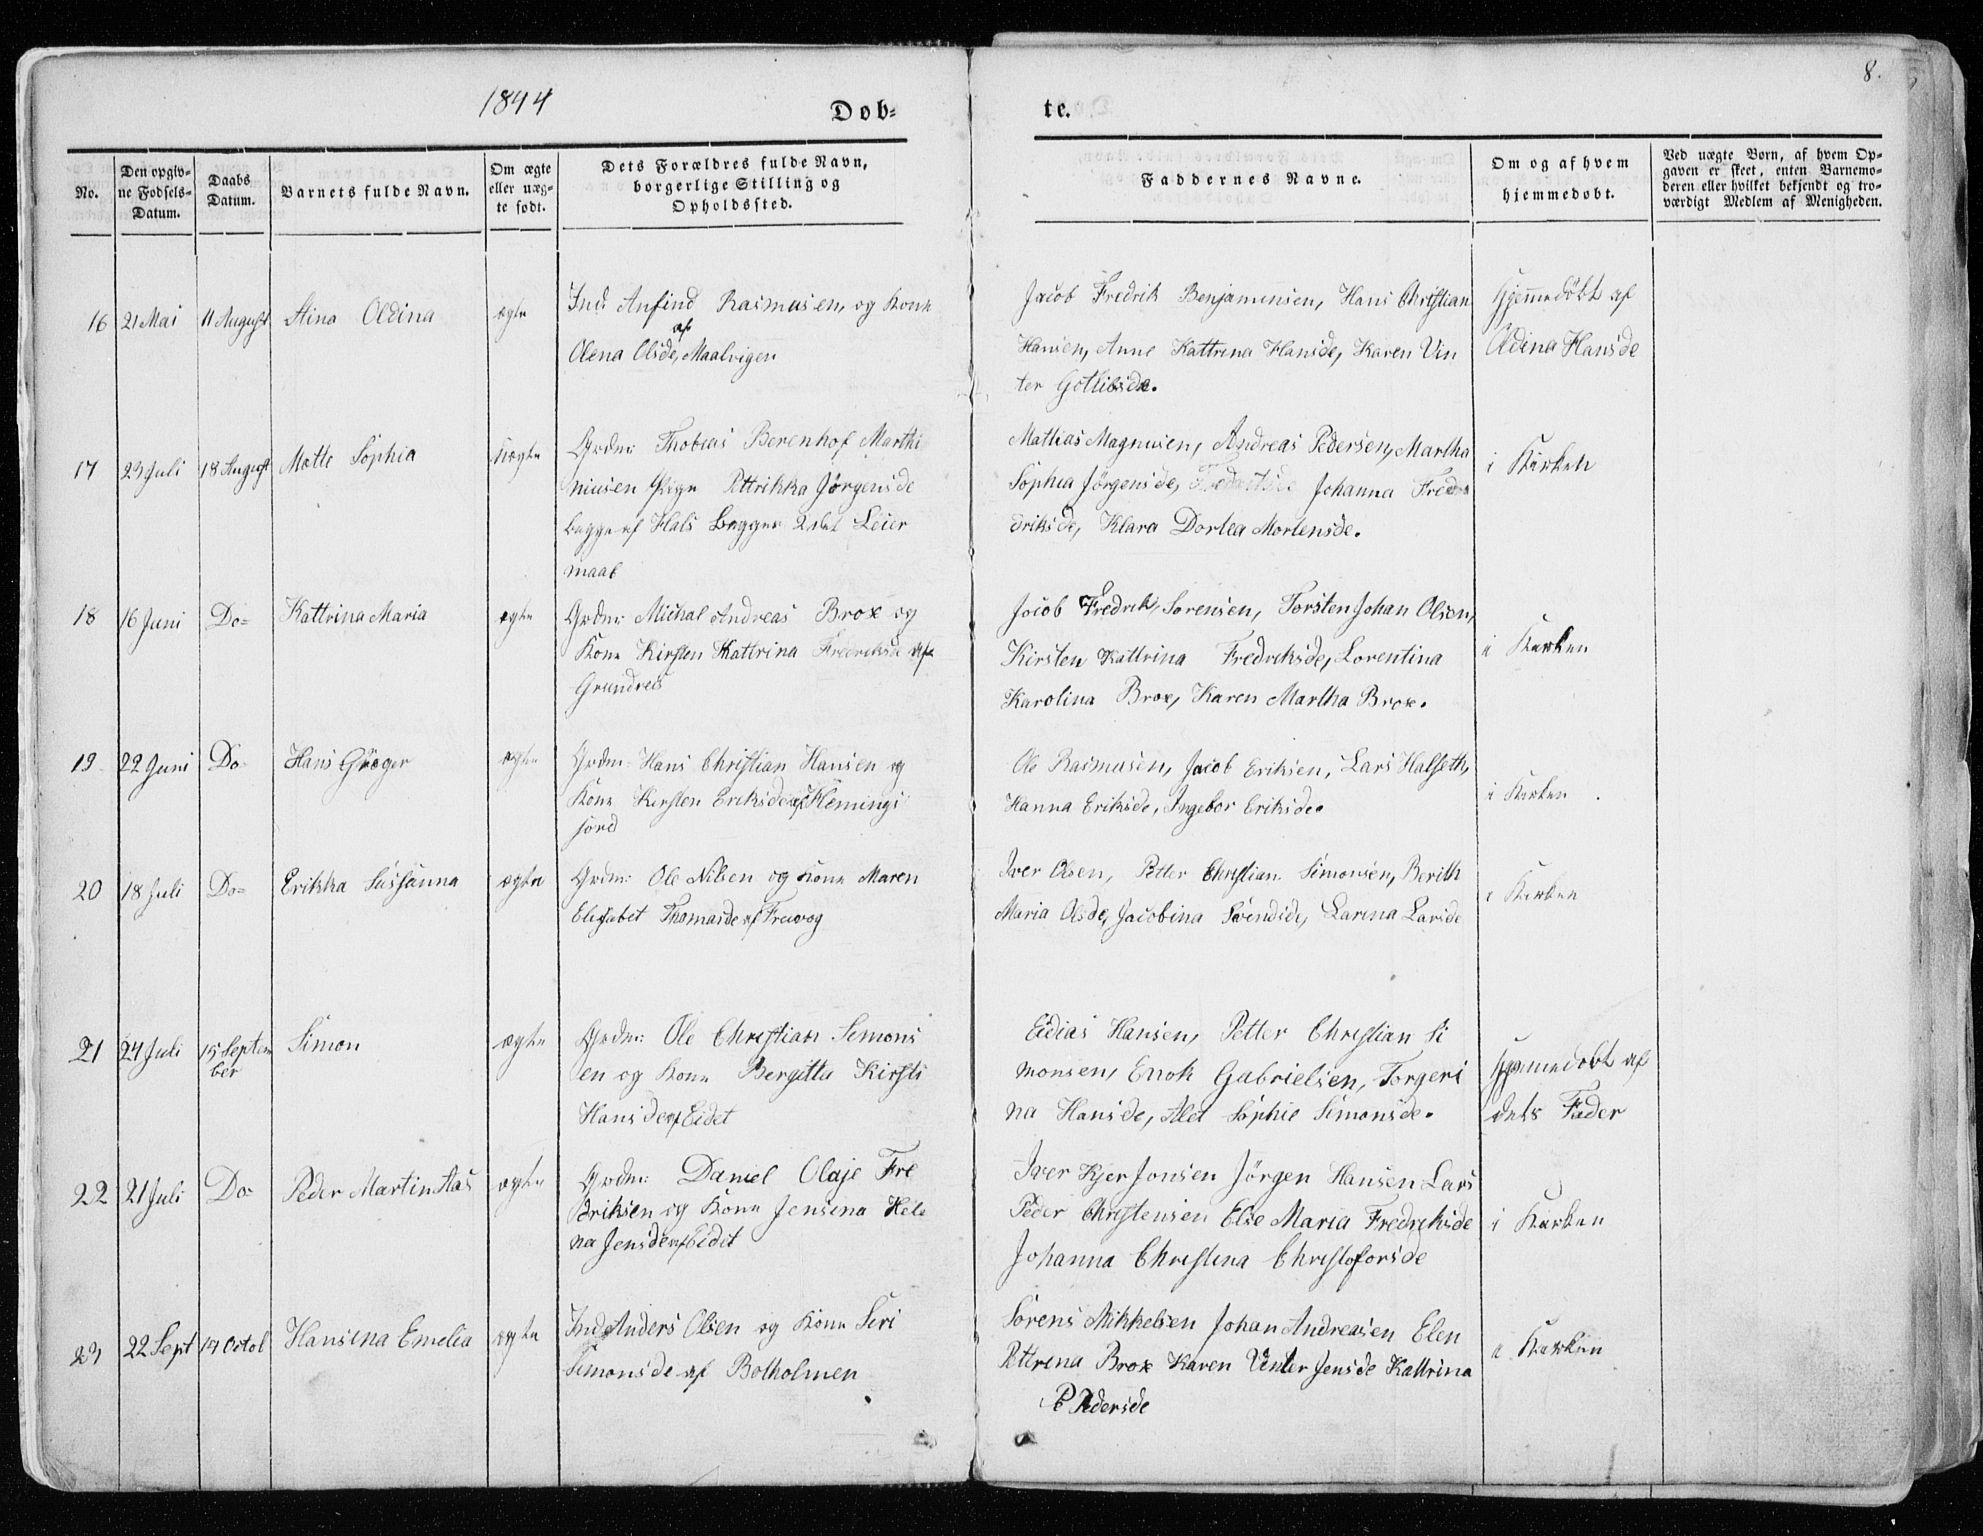 8.
1844
Dob-
te.
No.
Den opgiv-
ne Fødsels-
Datum.
Daabs
Datum.
Barnets fulde Navn.
Om ægte
eller uæg-
te født.
Dets Forældres fulde Navn,
borgerlige Stilling og
Opholdssted.
Faddernes Navne.
Om og af hvem
hjemmedøbt.
Ved uægte Børn, af hvem Op-
gaven er skeet, enten Barnemo-
deren eller hvilket bekjendt og tro-
værdigt Medlem af Menigheden.
16 21 Mai 11 August Stina Oldina ægte
Ind Anfind Rasmusen, og Kone
af
Olena Olsde, Maalvigen
Jacob Fredrik Benjaminsen, Hans Christian
Hansen, Anne Kattrina Hansde, Karen Vin
ter Gotlibsde.
Hjemmedøbt af
Oldina Hansde
17 23 Juli 18 August Mette Sophia uægte
Grdm: Thobias Berenhof Marthi
niusen Pige Pettrikka Jørgensde
begge af Hals Begges 2det Leier
maal
Mattias Magnusen, Andreas Pedersen, Martha
Sophia Jørgensde, Johanna Fred
driksde, Klara Dortea Mortensde.
i Kirken
18 16 Juni Do= Kattrina Maria ægte
Grdm: Michal Andreas Brox og
Kone Kirsten Kattrina Fredriksde af
Grundreis
Jacob Fredrik Sorensen, Torsten Johan Olsen,
Kirsten Kattrina Fredriksde, Lorentina
Karolina Brox, Karen Martha Brox.
i Kirken
19 22 Juni Do- Hans Grøger ægte
Grdm: Hans Christian Hansen og
Kone Kirsten Eriksde af Klemingi
jord
Ole Rasmusen, Jacob Eriksen, Lars Halseth,
Hanna Eriksde, Ingebor Eriksde.
i Kirken
20 18 Juli Do= Erikka Sussanna ægte
Grdm: Ole Nilsen og Kone Maren
Elisabet Thomasde af Frevog
Iver Olsen, Petter Christian Simonsen, Berith
Maria Olsde, Jacobina Svendsde, Larina Larsde
i Kirken
21 24 Juli 15 Septem
ber
Simon ægte
Grdm: Ole Christian Simons
en og Kone Bergitta Kirsti
Hansde af Eidet
Edias Hansen, Petter Christian Si
monsen, Enok Gabrielsen, Torgeri
na Hansde, Alet Sophie Simonsde.
Hjemmedøbt af
dets Fader
22 21 Juli Do= Peder Martin Aas ægte
Grdm: Daniel Olaje Fre
driksen og Kone Jensina Hele
na Jensde af Eidet
Iver Kjer Jonsen Jörgen Hansen Lars
Peder Christensen Else Maria Fredriksde
Johanna Christina Christoforsde
i Kirken
23 22 Sept 14 Octob Hansina Emelia ægte
Ind Anders Olsen og Kone Siri
Simonsde af Bolholmen
Sörens Mikkelsen Johan Andreasen Elen
Pettrina Brox Karen Vinter Jensde Kattrina
Pedersde
i Kirken